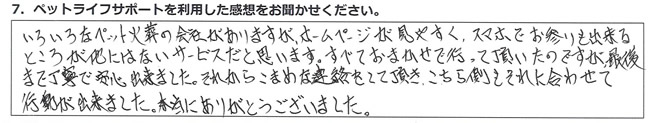 7. ペットライフサポートを利用した感想をお聞かせください。
いろいろなペット火葬の会社がありますが、ホームページが見やすく、スマホでお参りも出来る
ところが他にはないサービスだと思います。すべておまかせで行って頂いたのですが、最後
まで丁寧で安心出来ました。それからこまめな連絡をして頂き、こちら側もそれに合わせて
行動が出来ました。本当にありがとうございました。